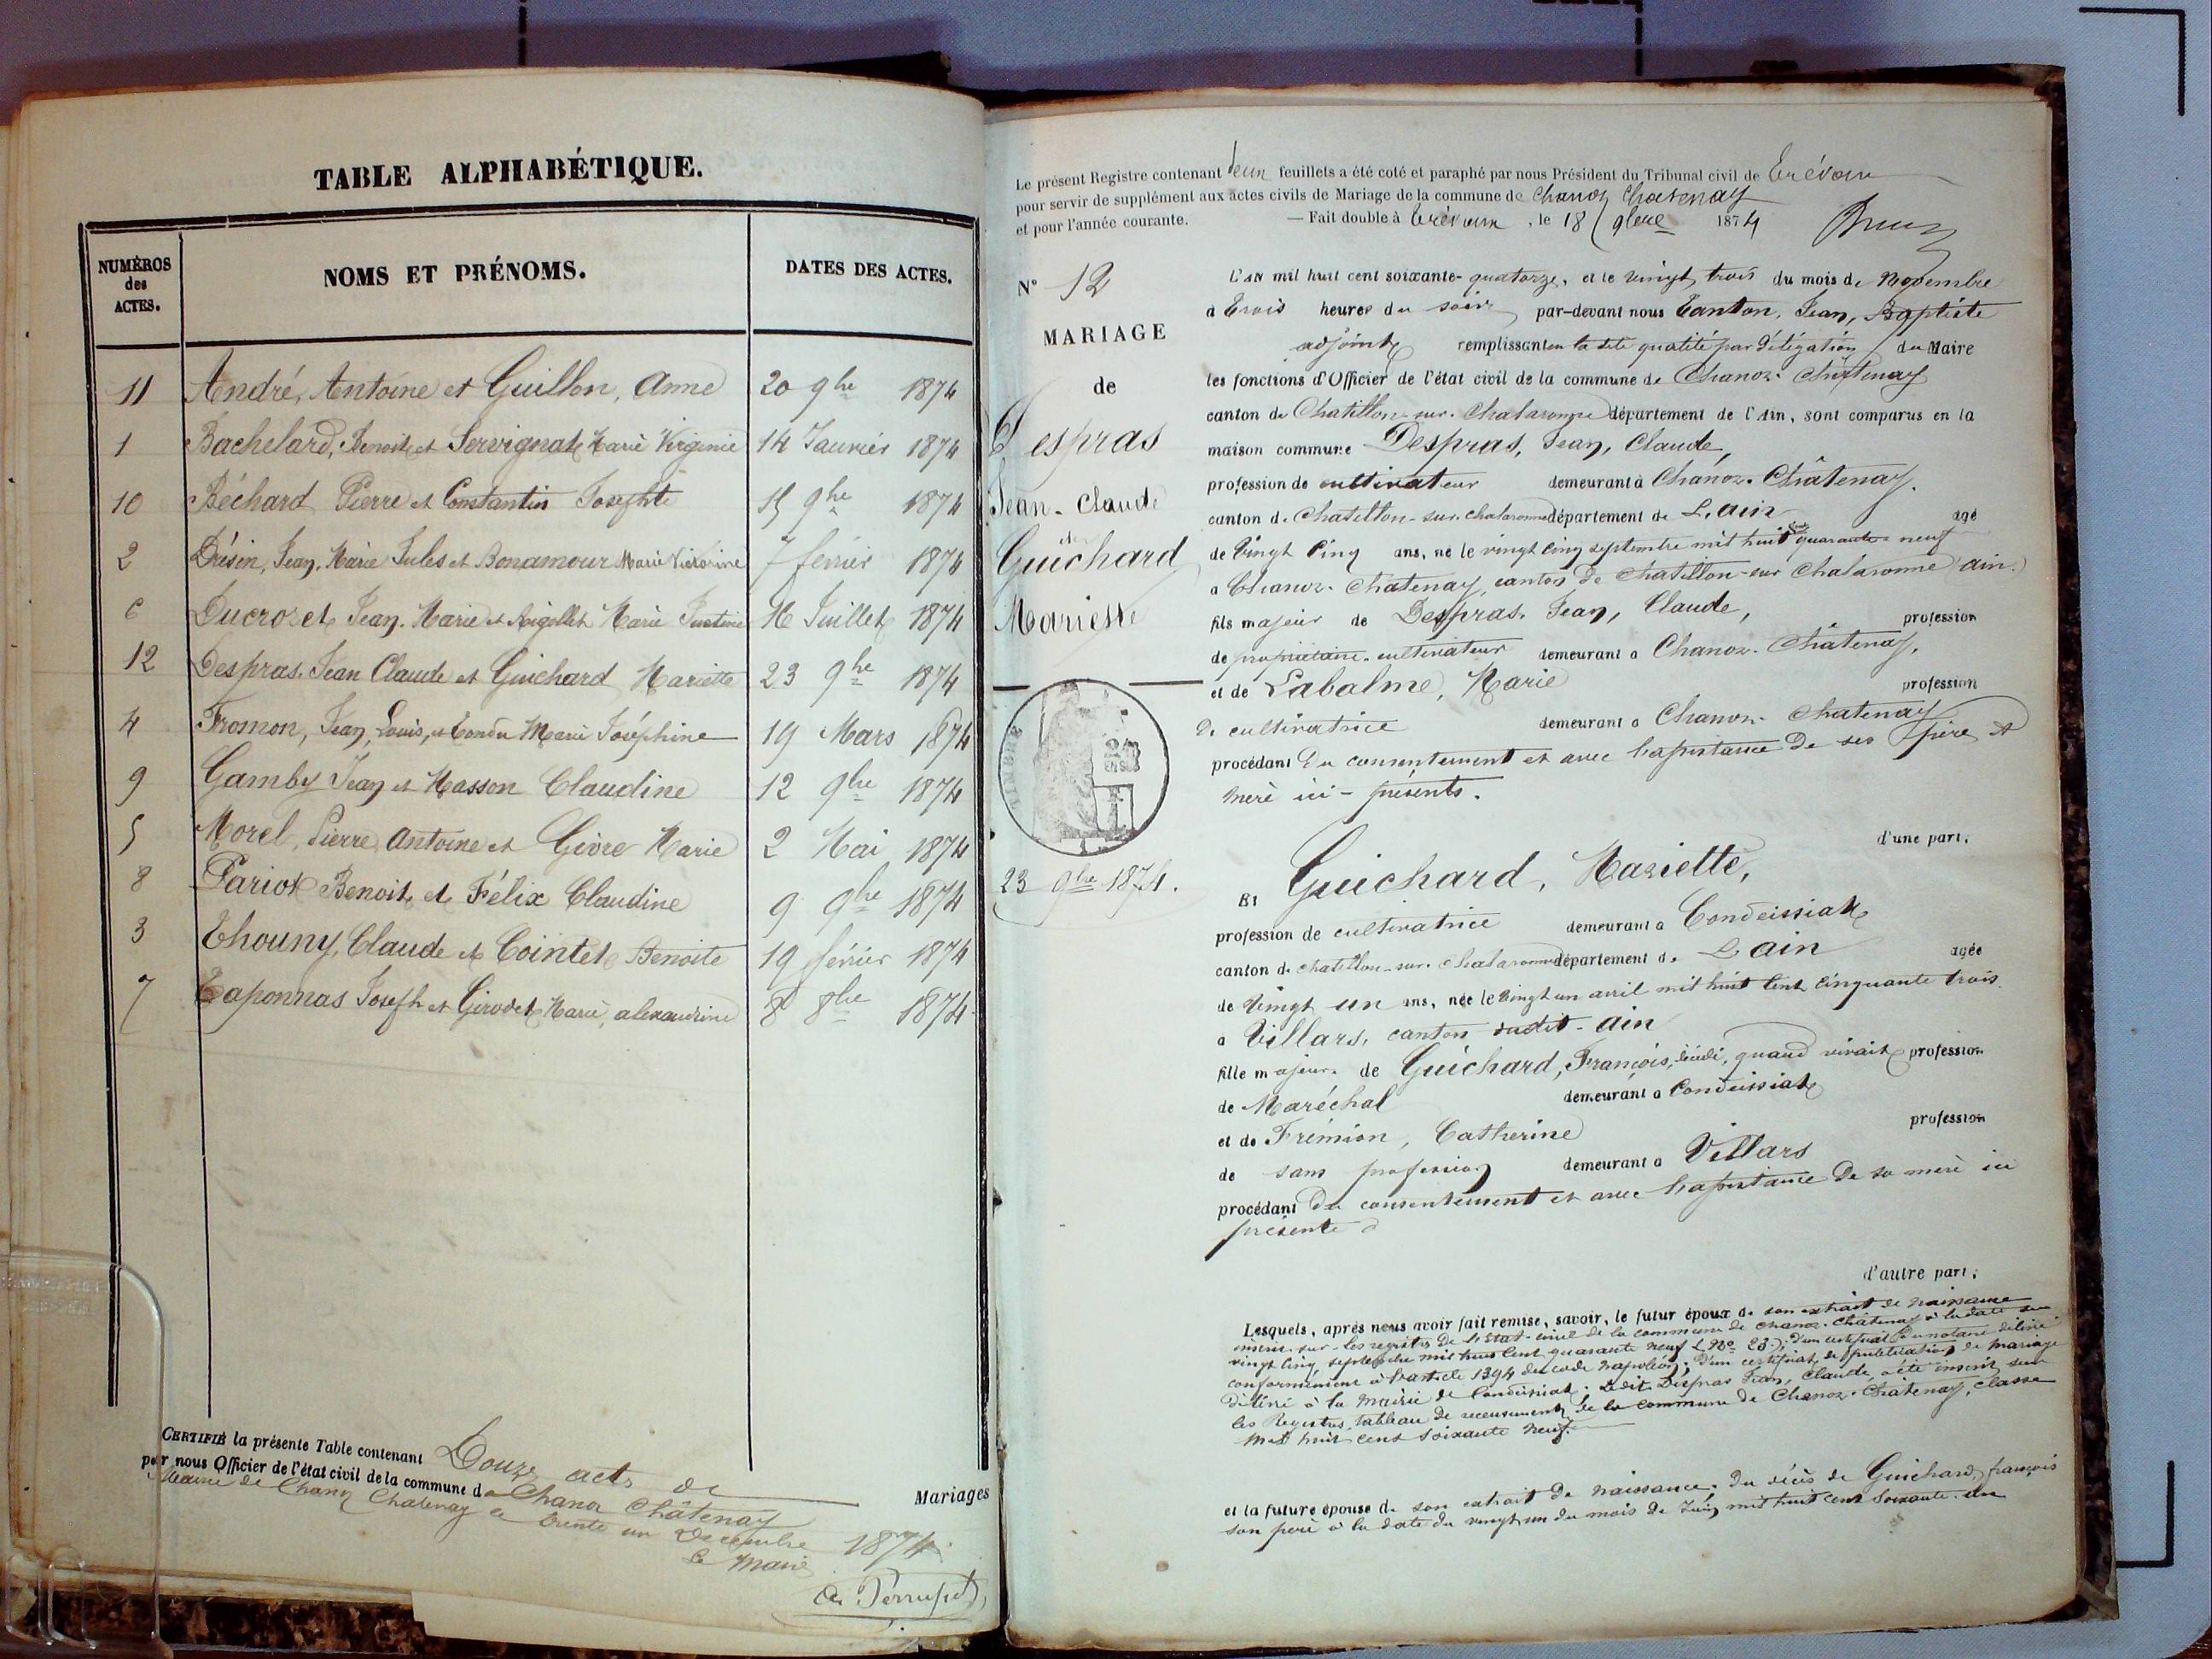 TABLE ALPHABÉTIQUE.
NUMÉROS des ACTES.
NOMS ET PRÉNOMS.
DATES DES ACTES.
11 André, Antoine et Guillon, Anne 20 9bre 1874
1 Bachelard, Benoit et Servignat Marie Virginie 14 Janvier 1874
10 Béchard Pierre et Constantin Josephte 15 9bre 1874
2 Drésin, Jean, Marie Jules et Bonamour Marie Victorine 7 février 1874
6 Ducrozet Jean-Marie et Rigollet Marie Justine 16 Juillet 1874
12 Despras Jean Claude et Guichard Mariette 23 9bre 1874
4 Fromon, Jean, Louis, et Tondu Marie Joséphine 19 Mars 1874
9 Gamby Jean et Masson Claudine 12 9bre 1874
5 Morel, Pierre Antoine et Givre Marie 2 Mai 1874
8 Pariot Benoit et Félix Claudine 9 9bre 1874
3 Thouny, Claude et Cointet Benoite 19 février 1874
7 Taponnas Joseph et Girodet Marie, alexandrine 8 8bre 1874
CERTIFIÉ la présente Table contenant Douze acts de Mariages
par nous Officier de l'état civil de la commune de Chanoz Châtenay
Mairie de Chanoz Chatenay le trente un Decembre 1874
Le Maire
Le présent Registre contenant deux feuillets a été coté et paraphé par nous Président du Tribunal civil de Trévoux
pour servir de supplément aux actes civils de Mariage de la commune de Chanoz Chatenay
et pour l'année courante. — Fait double à Trévoux, le 18 9bre 1874
N° 12
MARIAGE
de
Despras
Jean-Claude
et
Guichard
Mariette
TIMBRE
23 9bre 1874.
L'an mil huit cent soixante-quatorze, et le vingt trois du mois de Novembre
à trois heures du soir par-devant nous Tanton, Jean, Baptiste
adjoint remplissant en la dite qualité par délégation du Maire
les fonctions d'Officier de l'état civil de la commune de Chanoz-Châtenay
canton de Chatillon-sur-Chalaronne département de l'Ain, sont comparus en la
maison commune Despras, Jean, Claude,
profession de cultivateur demeurant à Chanoz-Châtenay.
canton de Chatillon-sur-Chalaronne département de L'ain agé
de Vingt Cinq ans, né le vingt cinq septembre mil huit cent quarante-neuf
a Chanoz-Châtenay, canton de Chatillon-sur Chalaronne (ain.)
fils majeur de Despras, Jean, Claude, profession
de propriétaire-cultivateur demeurant a Chanoz-Châtenay,
et de Labalme, Marie profession
de cultivatrice demeurant a Chanoz-Chatenay
procédant du consentement et avec l'assistance de ses père et
mère ici-présents.
d'une part;
Et Guichard, Mariette,
profession de cultivatrice demeurant a Condeissiat
canton de chatillon-sur-Chalaronne département de L'ain agée
de Vingt un ans, née le vingt un avril mil huit cent cinquante trois
a Villars, canton dudit-Ain
fille majeure de Guichard, François, décédé, quand vivait profession
de Maréchal demeurant a Condeissiat
et de Frémion, Catherine profession
de sans profession demeurant a Villars
procédant du consentement et avec l'assistance de sa mère ici
présente
d'autre part;
Lesquels, après nous avoir fait remise, savoir, le futur époux de son extrait de naissance
inscrit sur les registres de l'état-civil de la commune de Chanoz-Châtenay à la date du
vingt cinq septembre mil huit cent quarante neuf (No 23); d'un certificat du notaire délivré
conformément à l'article 1394 du code Napoléon; d'un certificat de publication de mariage
délivré à la Mairie de Condeissiat. Ledit Despras Jean, Claude, a été inscrit sur
les Registres, tableau de recensement de la commune de Chanoz-Châtenay, classe
mil huit cent soixante neuf.
et la future épouse de son extrait de naissance. du décès de Guichard, françois
son père à la date du vingt un du mois de Juin mil huit cent Soixante-un